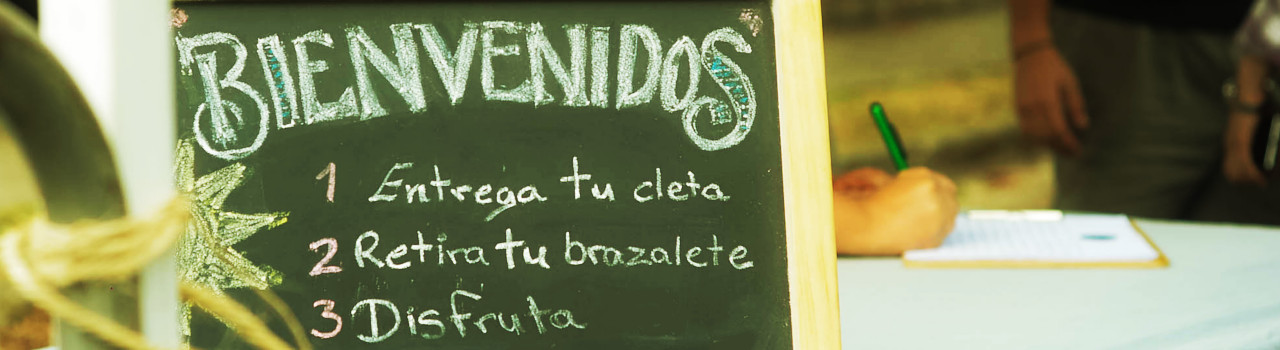 BIENVENIDOS
1 Entrega tu cleta
2 Retira tu brazalete
3 Disfruta